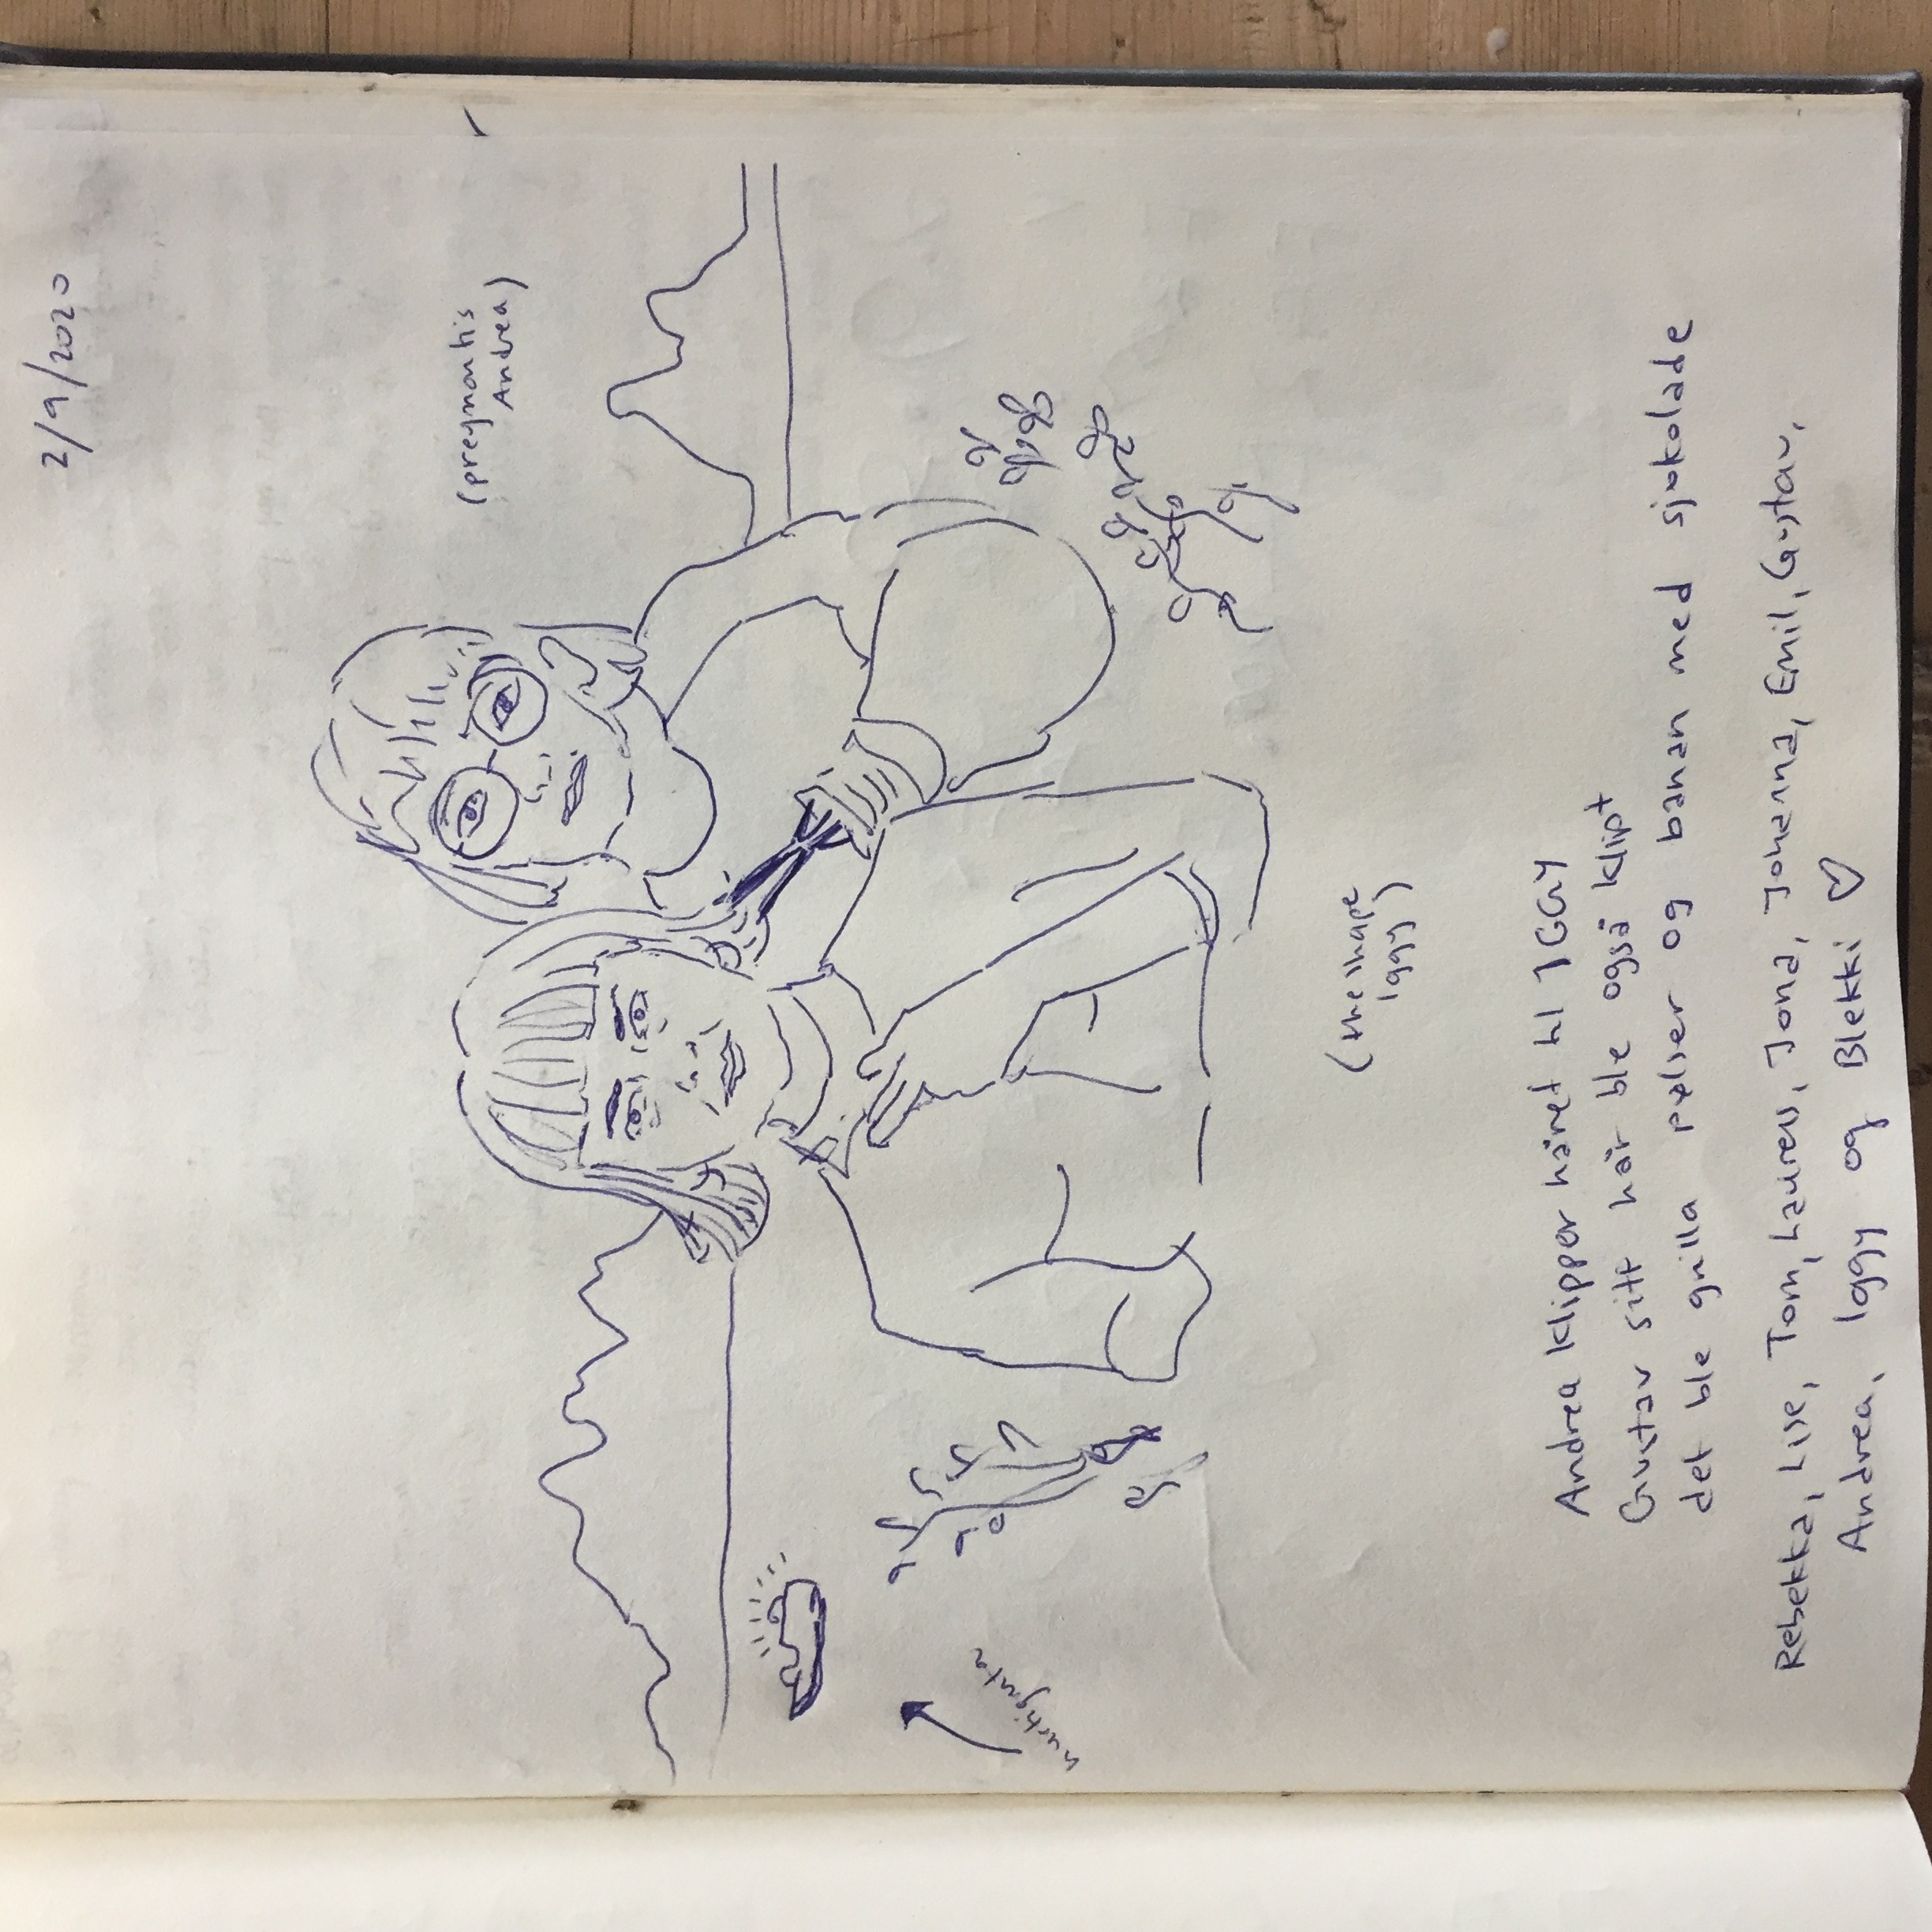 2/9/2020
(pregnantis
Andrea)
hurtigruta
Iggy)
Andrea klipper håret til IGGY
Gustav sitt hår ble også klipt
det ble grilla pølser og banan med sjokolade
Rebekka, Lise, Tom, Jona, Johanna, Emil, Gustav,
Andrea, Iggy og Blekki ♡